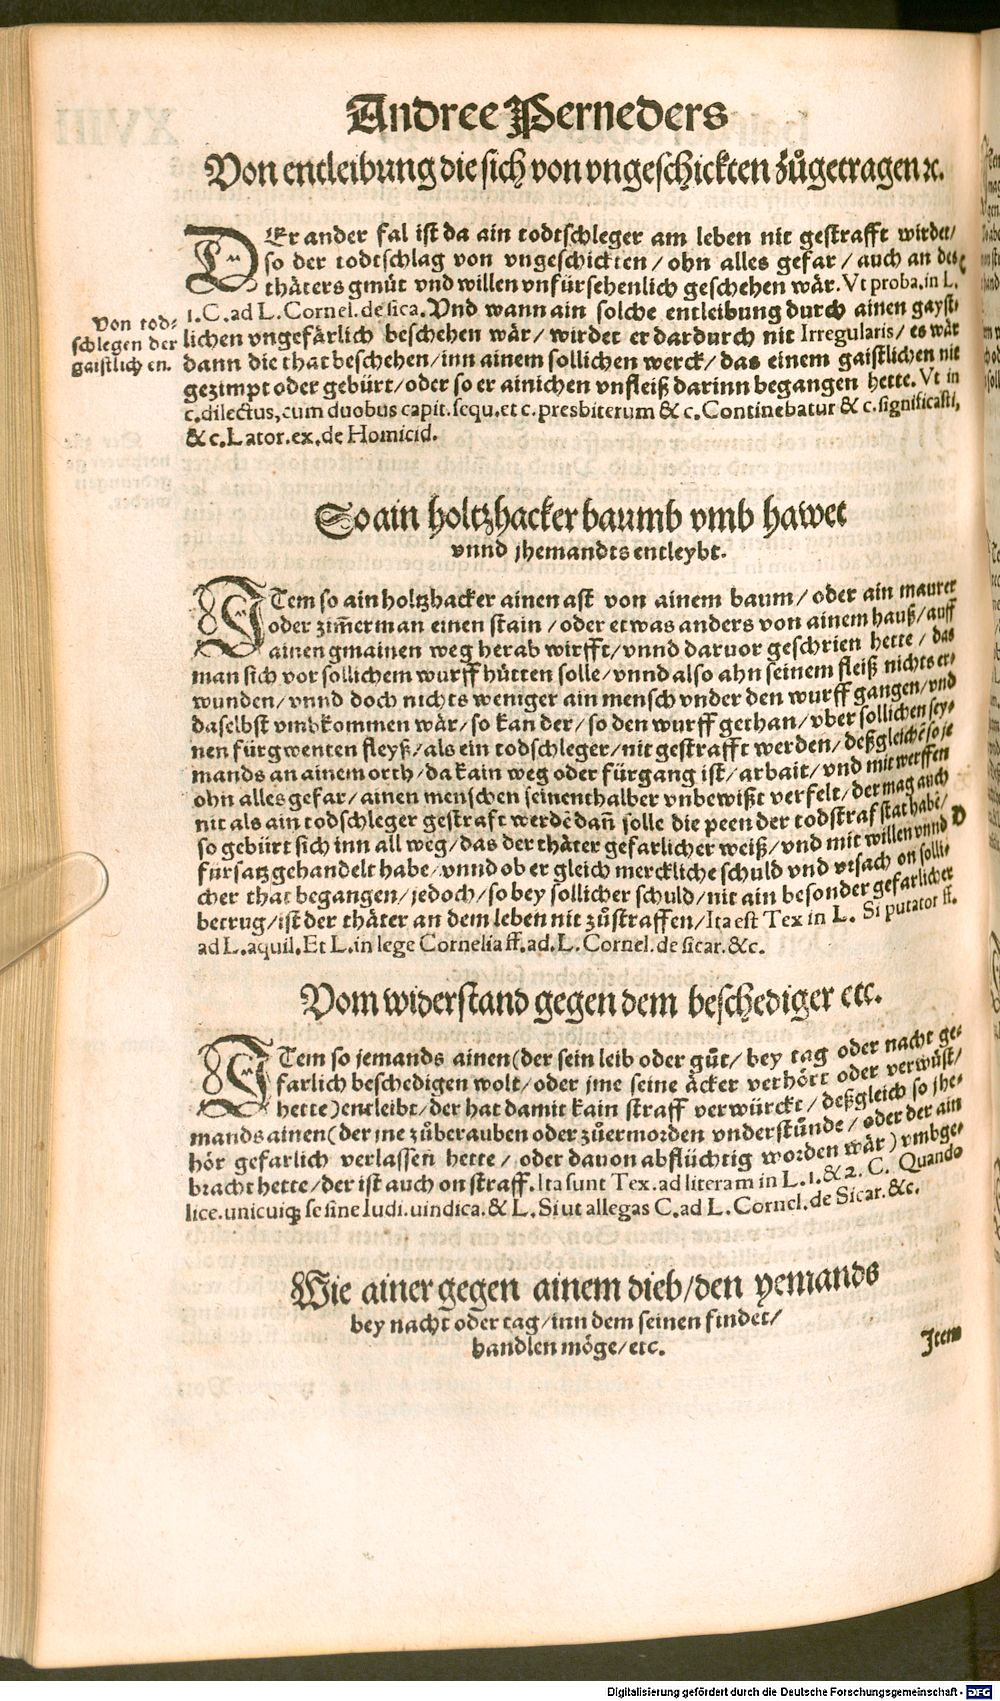 Andree Perneders
Von entleibung die sich von vngeschickten zůgetragen ꝛc.
DEr ander fal ist da ain todtschleger am leben nit gestrafft wirdet/
so der todtschlag von vngeschickten / ohn alles gefar / auch an des
thäters gmüt vnd willen vnfürsehenlich geschehen wär. Vt proba. in L.
1. C. ad L. Cornel. de sica. Vnd wann ain solche entleibung durch ainen gayst-
lichen vngefärlich beschehen wär / wirdet er dardurch nit Irregularis / es wär
dann die that beschehen / inn ainem sollichen werck / das einem gaistlichen nit
gezimpt oder gebürt / oder so er ainichen vnfleiß darinn begangen hette. Vt in
c. dilectus, cum duobus capit. sequ. et c. presbiterum & c. Continebatur & c. significasti,
& c. Lator. ex. de Homicid.
Von tod-
schlegen der
gaistlichen.
C
So ain holtzhacker baumb vmb hawet
vnnd jhemandts entleybt.
ITem so ain holtzhacker ainen ast von ainem baum / oder ain maurer
oder zim̄erman einen stain / oder etwas anders von ainem hauß / auff
ainen gmainen weg herab wirfft / vnnd daruor geschrien hette / das
man sich vor sollichem wurff hütten solle / vnnd also ahn seinem fleiß nichts er-
wunden / vnnd doch nichts weniger ain mensch vnder den wurff gangen / vnd
daselbst vmbkommen wär / so kan der / so den wurff gethan / vber sollichen sey-
nen fürgwenten fleyß / als ein todschleger / nit gestrafft werden / deßgleichē so je
mands an ainem orth / da kain weg oder fürgang ist / arbait / vnd mit werffen
ohn alles gefar / ainen menschen seinenthalber vnbewißt verfelt / der mag auch
nit als ain todschleger gestraft werdē dan̄ solle die peen der todstraf stat habē /
so gebürt sich inn all weg / das der thäter gefarlicher weiß / vnd mit willen vnnd D
fürsatz gehandelt habe / vnnd ob er gleich merckliche schuld vnd vrsach on solli-
cher that begangen / jedoch / so bey sollicher schuld / nit ain besonder gefarlicher
betrug / ist der thäter an dem leben nit zůstraffen / Ita est Tex in L. Si putator ff.
ad L. aquil. Et L. in lege Cornelia ff. ad. L. Cornel. de sicar. &c.
Vom widerstand gegen dem beschediger etc.
ITem so jemands ainen (der sein leib oder gůt / bey tag oder nacht ge-
farlich beschedigen wolt / oder jme seine äcker verhört oder verwüst /
hette) entleibt / der hat damit kain straff verwürckt / deßgleich so jhe-
mands ainen (der jne zůberauben oder zůermorden vnderstünde / oder der ain
hör gefarlich verlassen hette / oder dauon abflüchtig worden wär) vmbge-
bracht hette / der ist auch on straff. Ita sunt Tex. ad literam in L. 1. & 2. C. Quando
lice. unicuiqꝫ se sine Iudi. uindica. & L. Si ut allegas C. ad L. Cornel. de Sicar. &c.
Wie ainer gegen ainem dieb / den yemands
bey nacht oder tag / inn dem seinen findet /
handlen möge / etc.
Item
Digitalisierung gefördert durch die Deutsche Forschungsgemeinschaft - DFG